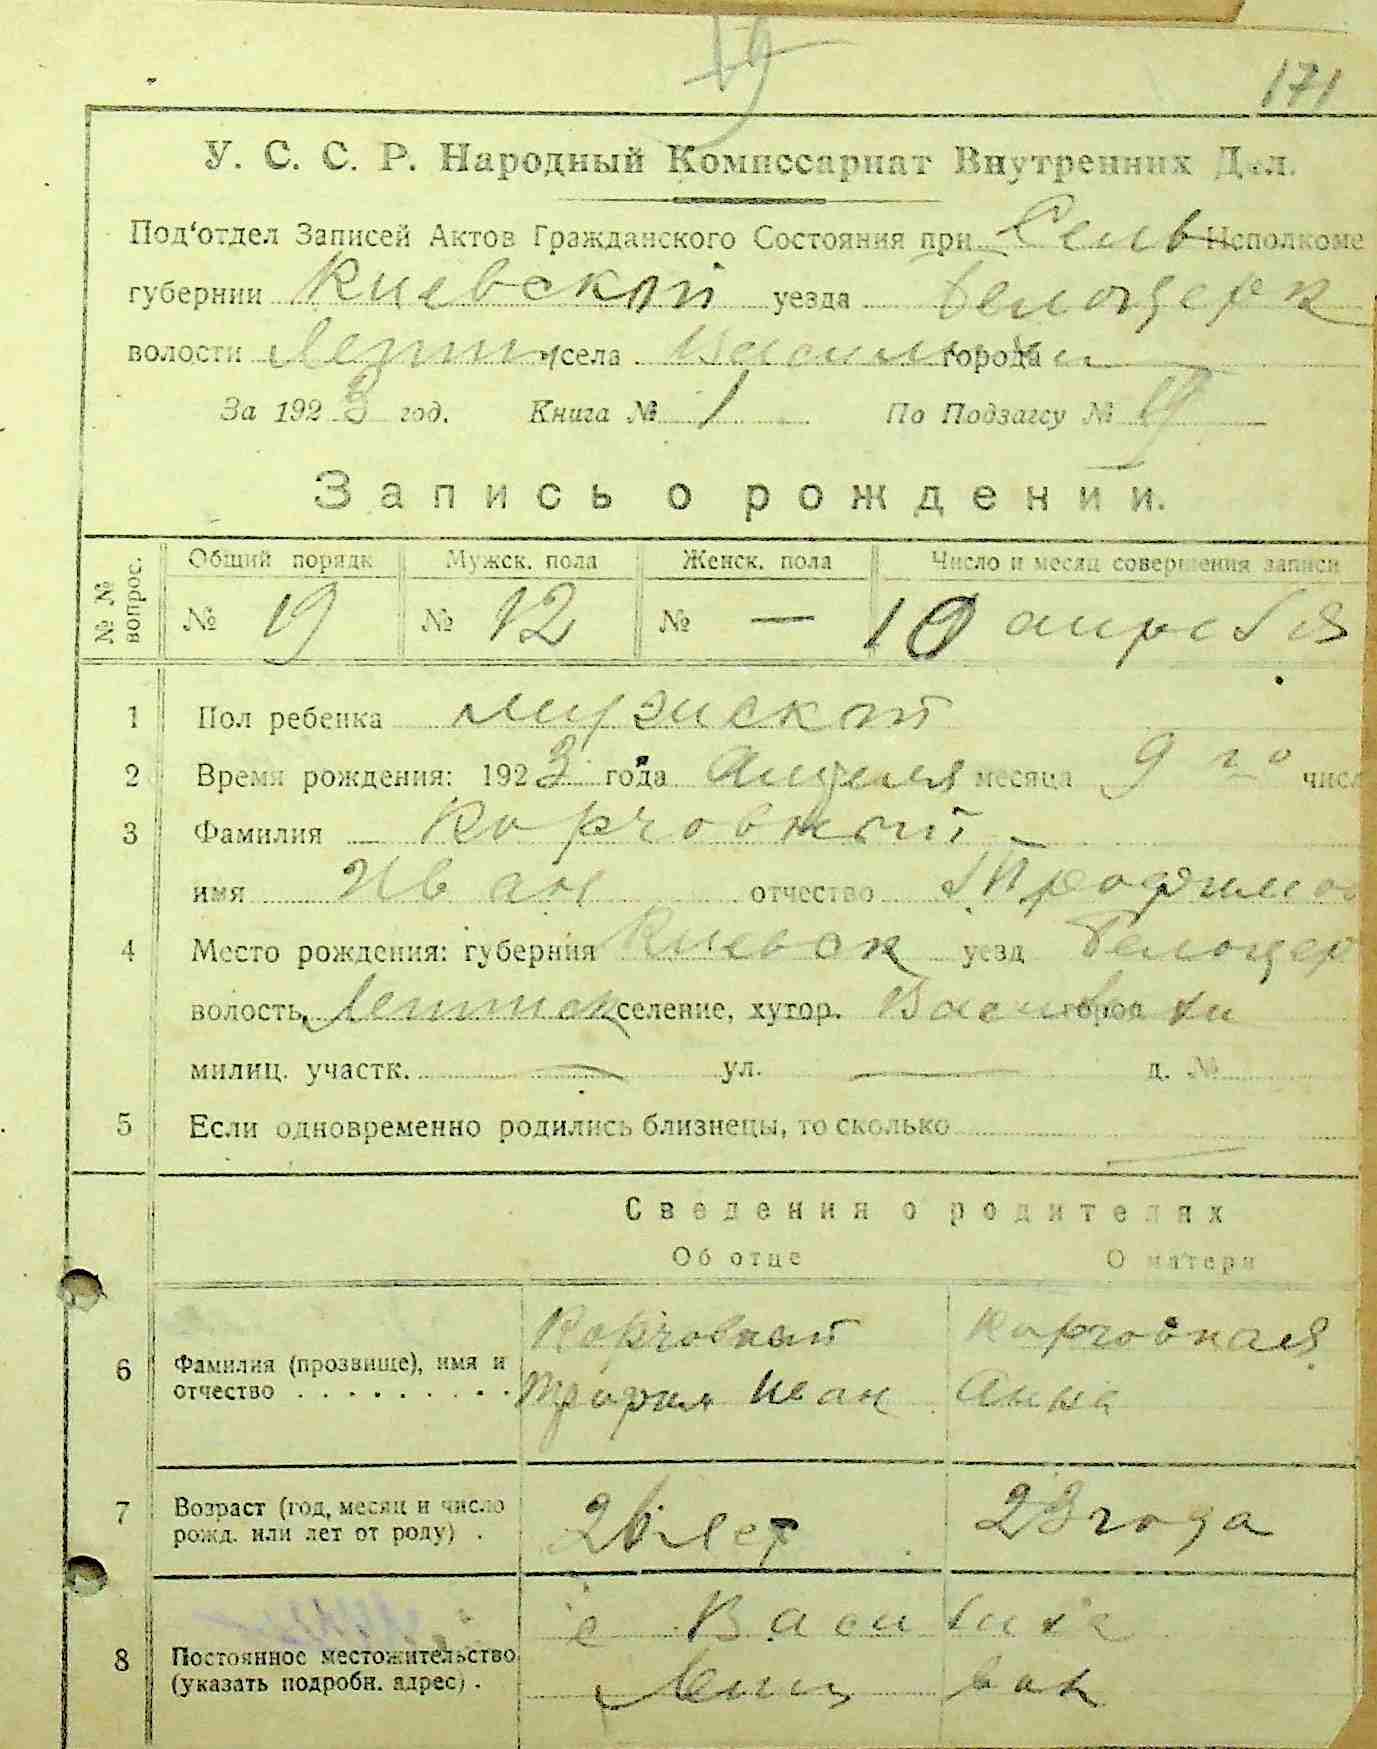 19
171
У. С. С. Р. Народный Комиссариат Внутренних Дел.
Под‘отдел Записей Актов Гражданского Состояния при Сель Исполкоме
губернии Киевской уезда Белоцерк
волости села города
За 1923 год. Книга № 1 По Подзагсу № 19
Запись о рождении.
№ № вопрос. Общий порядк Мужск. пола Женск. пола Число и месяц совершения записи
№ 19 № 12 № — 10 апреля
1 Пол ребенка мужской
2 Время рождения: 1923 года Апреля месяца 9 го числ
3 Фамилия Корчовный
имя Иван отчество Трофимов
4 Место рождения: губерния Киевск уезд Белоцер
волость селение, хутор. город
милиц. участк. — ул. — д. №
5 Если одновременно родились близнецы, то сколько —
Сведения о родителях
Об отце О матери
6 Фамилия (прозвище), имя и отчество . . . . . . . . . .
Корчовный Корчовная
Трофим Иван Анна
7 Возраст (год, месяц и число рожд. или лет от роду) .
26 лет 23 года
8 Постоянное местожительство (указать подробн. адрес) .
с